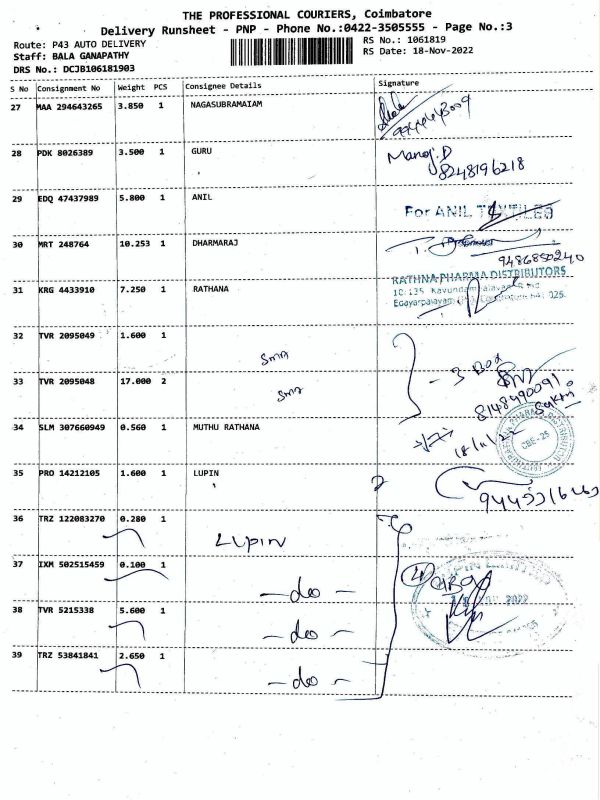 THE PROFESSIONAL COURIERS, Coimbatore
Delivery Runsheet - PNP - Phone No.:0422-3505555 - Page No.:3
Route: P43 AUTO DELIVERY
RS No.: 1061819
Staff: BALA GANAPATHY
RS Date: 18-Nov-2022
DRS No.: DCJB106181903
S No Consignment No Weight PCS Consignee Details Signature
27 MAA 294643265 3.850 1 NAGASUBRAMAIAM
28 PDK 8026389 3.500 1 GURU Manoj.D
8248196218
29 EDQ 47437989 5.800 1 ANIL
For ANIL TEXTILES
30 MRT 248764 10.253 1 DHARMARAJ
9486850240
RATHNA PHARMA DISTRIBUTORS
31 KRG 4433910 7.250 1 RATHANA
32 TVR 2095049 1.600 1
sma
- 3 Box
33 TVR 2095048 17.000 2 sma
8148490091
34 SLM 307660949 0.560 1 MUTHU RATHANA
18/11/22
CBE-25
35 PRO 14212105 1.600 1 LUPIN
36 TRZ 122083270 0.280 1 Lupin
37 IXM 502515459 0.100 1 -do-
38 TVR 5215338 5.600 1 -do-
2022
39 TRZ 53841841 2.650 1 -do-